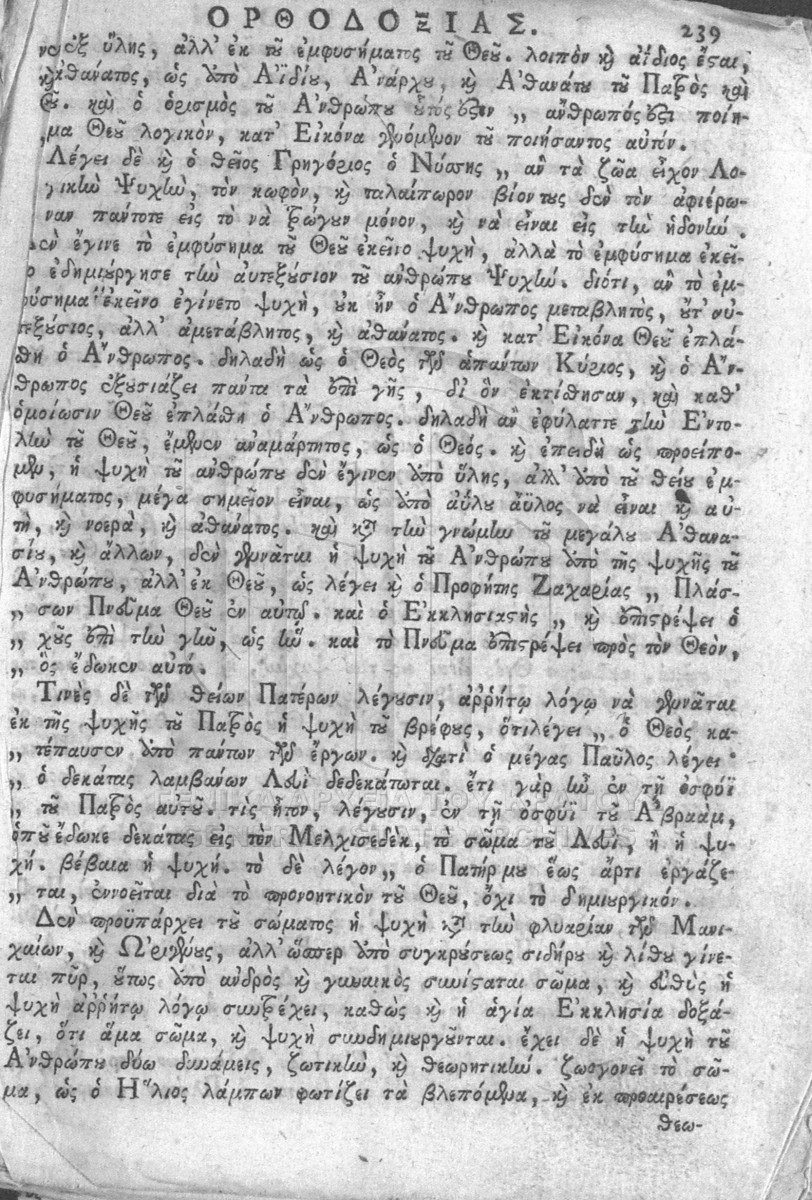 ΟΡΘΟΔΟΞΙΑΣ. 239
ἐξ ὕλης, ἀλλ' ἐκ τοῦ ἐμφυσήματος τοῦ Θεοῦ. λοιπὸν καὶ ἀΐδιος ἔσαι,
καὶ ἀθάνατος, ὡς ὑπὸ Ἀϊδίου, Ἀνάρχου, καὶ Ἀθανάτου τοῦ Πατρὸς καὶ
Θεοῦ. καὶ ὁ ὁρισμὸς τοῦ Ἀνθρώπου οὗτός ἐστιν „ ἄνθρωπός ἐστι ποίη-
μα Θεοῦ λογικὸν, κατ' Εἰκόνα γενόμενον τοῦ ποιήσαντος αὐτόν.
Λέγει δὲ καὶ ὁ θεῖος Γρηγόριος ὁ Νύσσης „ ἂν τὰ ζῶα εἶχον Λο-
γικὴν Ψυχὴν, τὸν κωφὸν, καὶ ταλαίπωρον βίον τους δὲν τὸν ἀφιέρω-
ναν πάντοτε εἰς τὸ νὰ τρώγουν μόνον, καὶ νὰ εἶναι εἰς τὴν ἡδονήν.
δὲν ἔγινε τὸ ἐμφύσημα τοῦ Θεοῦ ἐκεῖνο ψυχὴ, ἀλλὰ τὸ ἐμφύσημα ἐκεῖ-
νο ἐδημιούργησε τὴν αὐτεξούσιον τοῦ ἀνθρώπου Ψυχήν. διότι, ἂν τὸ ἐμ-
φύσημα ἐκεῖνο ἐγίνετο ψυχὴ, οὐκ ἦν ὁ Ἄνθρωπος μεταβλητὸς, οὔτ' αὐ-
τεξούσιος, ἀλλ' ἀμετάβλητος, καὶ ἀθάνατος. καὶ κατ' Εἰκόνα Θεοῦ ἐπλά-
θη ὁ Ἄνθρωπος. δηλαδὴ ὡς ὁ Θεὸς τῶν ἁπάντων Κύριος, καὶ ὁ Ἄν-
θρωπος ἐξουσιάζει πάντα τὰ ἐπὶ γῆς, δι' ὃν ἐκτίσθησαν, καὶ καθ'
ὁμοίωσιν Θεοῦ ἐπλάθη ὁ Ἄνθρωπος. δηλαδὴ ἂν ἐφύλαττε τὴν Ἐντο-
λὴν τοῦ Θεοῦ, ἔμενεν ἀναμάρτητος, ὡς ὁ Θεός. καὶ ἐπειδὴ ὡς προείπο-
μεν, ἡ ψυχὴ τοῦ ἀνθρώπου δὲν ἔγινεν ὑπὸ ὕλης, ἀλλ' ὑπὸ τοῦ θείου ἐμ-
φυσήματος, μέγα σημεῖον εἶναι, ὡς ὑπὸ ἀΰλου ἄϋλος νὰ εἶναι καὶ αὐ-
τὴ, καὶ νοερὰ, καὶ ἀθάνατος. καὶ κατὰ τὴν γνώμην τοῦ μεγάλου Ἀθανα-
σίου, καὶ ἄλλων, δὲν γεννᾶται ἡ ψυχὴ τοῦ Ἀνθρώπου ὑπὸ τῆς ψυχῆς τοῦ
Ἀνθρώπου, ἀλλ' ἐκ Θεοῦ, ὡς λέγει καὶ ὁ Προφήτης Ζαχαρίας „ Πλάσ-
„ σων Πνεῦμα Θεοῦ ἐν αὐτῷ. καὶ ὁ Ἐκκλησιαστὴς „ καὶ ἐπιστρέψει ὁ
„ χοῦς ἐπὶ τὴν γῆν, ὡς ἦν. καὶ τὸ Πνεῦμα ἐπιστρέψει πρὸς τὸν Θεὸν,
„ ὃς ἔδωκεν αὐτό.
Τινὲς δὲ τῶν θείων Πατέρων λέγουσιν, ἀῤῥήτῳ λόγῳ νὰ γεννᾶται
ἐκ τῆς ψυχῆς τοῦ Πατρὸς ἡ ψυχὴ τοῦ βρέφους, ὅτι λέγει „ ὁ Θεὸς κα-
„ τέπαυσεν ὑπὸ πάντων τῶν ἔργων. καὶ διατὶ ὁ μέγας Παῦλος λέγει
„ ὁ δεκάτας λαμβάνων Λευὶ δεδεκάτωται. ἔτι γὰρ ἦν ἐν τῇ ὀσφύϊ
„ τοῦ Πατρὸς αὐτοῦ. τίς ἦτον, λέγουσιν, ἐν τῇ ὀσφύϊ τοῦ Ἀβραὰμ,
ὁποῦ ἔδωκε δεκάτας εἰς τὸν Μελχισεδὲκ, τὸ σῶμα τοῦ Λευὶ, ἢ ἡ ψυ-
χή. βέβαια ἡ ψυχή. τὸ δὲ λέγον „ ὁ Πατήρ μου ἕως ἄρτι ἐργάζε-
„ ται, ἐννοεῖται διὰ τὸ προνοητικὸν τοῦ Θεοῦ, ὄχι τὸ δημιουργικόν.
Δὲν προϋπάρχει τοῦ σώματος ἡ ψυχὴ κατὰ τὴν φλυαρίαν τῶν Μανι-
χαίων, καὶ Ὠριγένους, ἀλλ' ὥσπερ ὑπὸ συγκρύσεως σιδήρου καὶ λίθου γίνε-
ται πῦρ, οὕτως ὑπὸ ἀνδρὸς καὶ γυναικὸς συνίσταται σῶμα, καὶ εὐθὺς ἡ
ψυχὴ ἀῤῥήτῳ λόγῳ συντρέχει, καθὼς καὶ ἡ ἁγία Ἐκκλησία δοξά-
ζει, ὅτι ἅμα σῶμα, καὶ ψυχὴ συνδημιουργοῦνται. ἔχει δὲ ἡ ψυχὴ τοῦ
Ἀνθρώπου δύω δυνάμεις, ζωτικὴν, καὶ θεωρητικήν. ζωογονεῖ τὸ σῶ-
μα, ὡς ὁ Ἥλιος λάμπων φωτίζει τὰ βλεπόμενα, καὶ ἐκ προαιρέσεως
θεω-